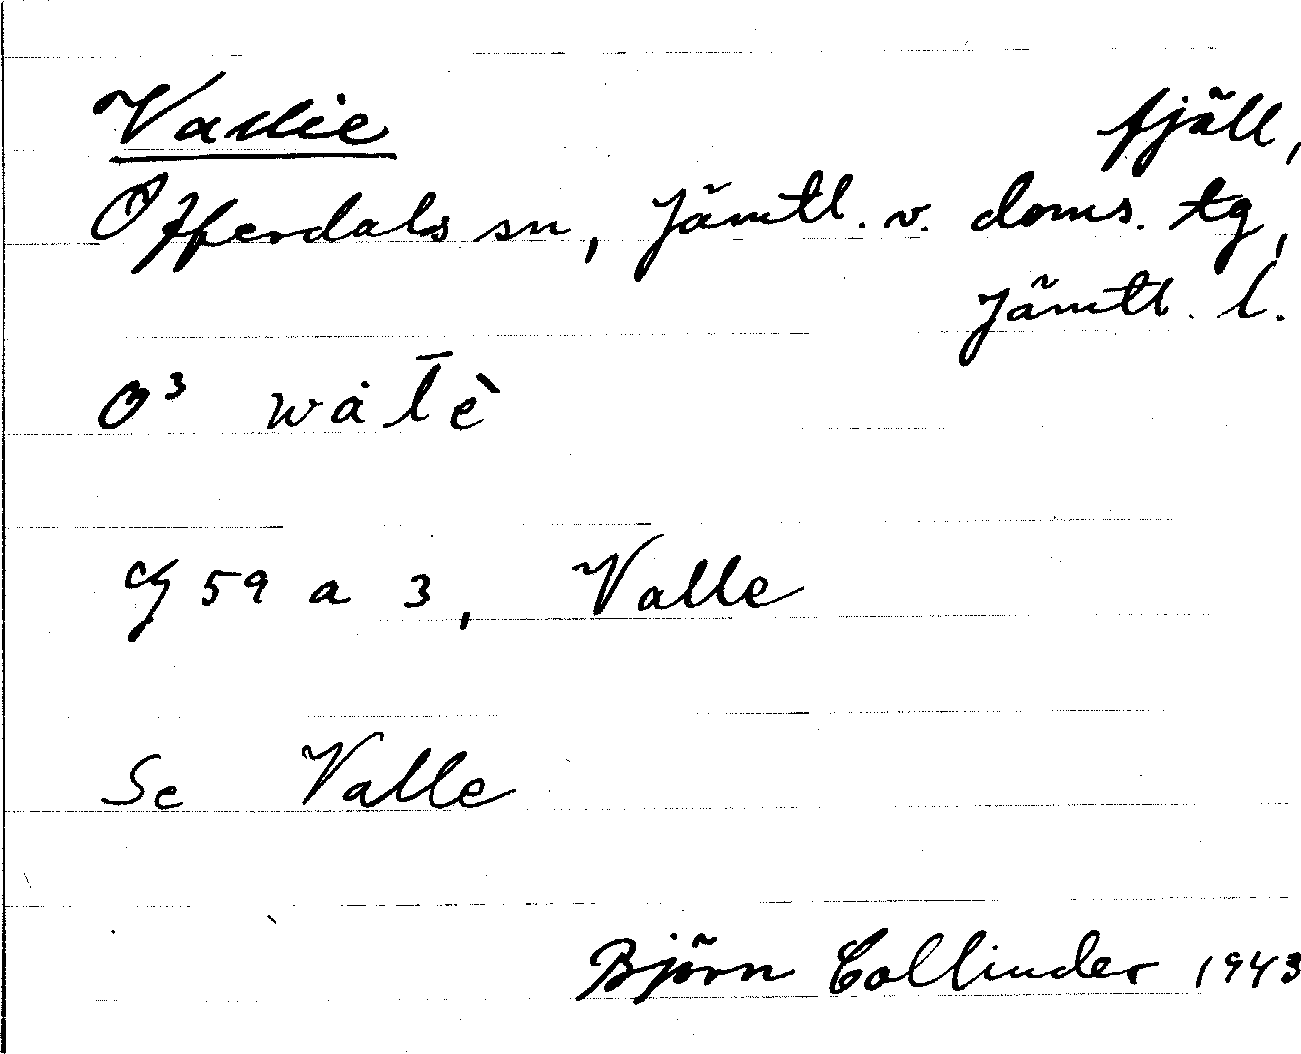 Vallie fjäll,
Offerdals sn, Jämtl. v. doms. tg,
Jämtl. l.
O³ wȧl̄è
G 59 a 3, Valle
Se Valle
Björn Collinder 1943